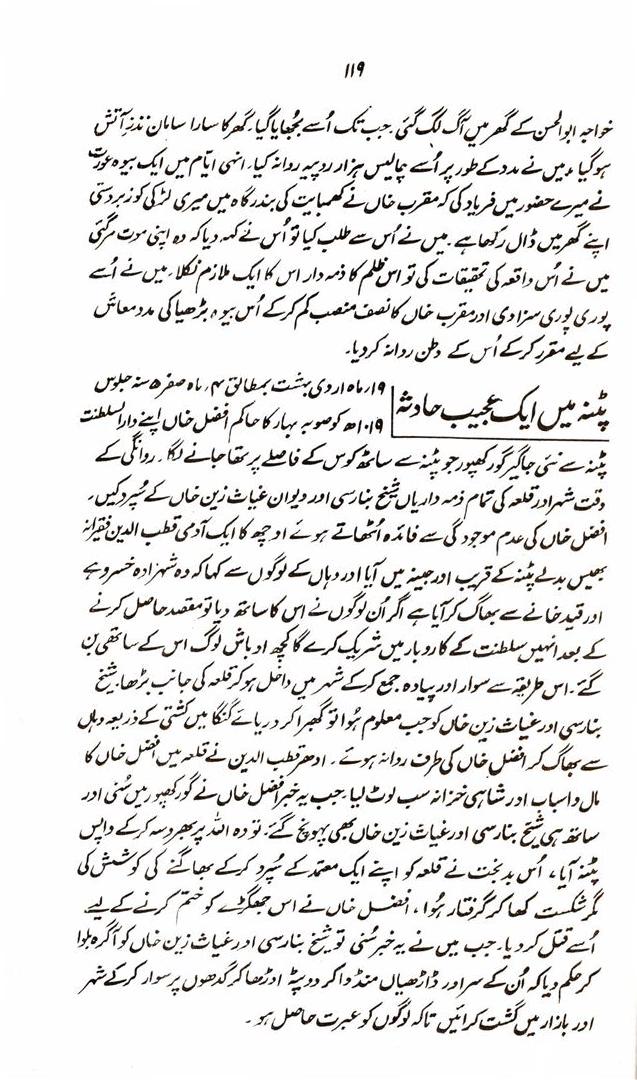 ۱۱۹
خواجہ ابوالحسن کے گھر میں آگ لگ گئی۔ جب تک اُسے بُجھایا گیا۔ گھر کا سارا سامان نذرِ آتش
ہو گیا، میں نے مدد کے طور پر اُسے چالیس ہزار روپیہ روانہ کیا۔ انہی ایّام میں ایک بیوہ عورت
نے میرے حضور میں فریاد کی کہ مقرب خاں نے کھمبایت کی بندرگاہ میں میری لڑکی کو زبردستی
اپنے گھر میں ڈال رکھا ہے۔ میں نے اُس سے طلب کیا تو اُس نے کہہ دیا کہ وہ اپنی موت مرگئی
میں نے اُس واقعہ کی تحقیقات کی تو اس ظلم کا ذمہ دار اس کا ایک ملازم نکلا۔ میں نے اُسے
پوری پوری سزا دی اور مقرب خاں کا نصف منصب کم کرکے اُس بیوہ بڑھیا کی مدد معاش
کے لیے مقرر کرکے اُس کے وطن روانہ کر دیا۔
پٹنہ میں ایک عجیب حادثہ
۱۹؍ ماہ اردی بہشت بمطابق ۴؍ ماہ صفر ۴ سنہ جلوس
۱۰۱۹ھ کو صوبہ بہار کا حاکم افضل خاں اپنے دارالسلطنت
پٹنہ سے نئی جاگیر گورکھپور جو پٹنہ سے ساٹھ کوس کے فاصلے پر تھا جانے لگا۔ روانگی کے
وقت شہر اور قلعہ کی تمام ذمہ داریاں شیخ بنارسی اور دیوان غیاث زین خاں کے سُپرد کیں۔
افضل خاں کی عدم موجودگی سے فائدہ اُٹھاتے ہوئے اوچھ کا ایک آدمی قطب الدین فقیرانہ
بھیس بدلے پٹنہ کے قریب اور جینہ میں آیا اور وہاں کے لوگوں سے کہا کہ وہ شہزادہ خسرو ہے
اور قید خانے سے بھاگ کر آیا ہے اگر اُن لوگوں نے اس کا ساتھ دیا تو مقصد حاصل کرنے
کے بعد انہیں سلطنت کے کاروبار میں شریک کرے گا کچھ اوباش لوگ اس کے ساتھی بن
گئے۔ اس طریقہ سے سوار اور پیادہ جمع کرکے شہر میں داخل ہو کر قلعہ کی جانب بڑھا۔ شیخ
بنارسی اور غیاث زین خاں کو جب معلوم ہُوا تو گھبرا کر دریائے گنگا میں کشتی کے ذریعہ وہاں
سے بھاگ کر افضل خاں کی طرف روانہ ہوئے۔ ادھر قطب الدین نے قلعہ میں افضل خاں کا
مال و اسباب اور شاہی خزانہ سب لوٹ لیا۔ جب یہ خبر افضل خاں نے گورکھپور میں سُنی اور
ساتھ ہی شیخ بنارسی اور غیاث زین خاں بھی پہونچ گئے۔ تو وہ اللہ پر بھروسہ کرکے واپس
پٹنہ آیا، اُس بدبخت نے قلعہ کو اپنے ایک معتمد کے سُپرد کرکے بھاگنے کی کوشش کی
مگر شکست کھا کر گرفتار ہُوا، افضل خاں نے اس جھگڑے کو ختم کرنے کے لیے
اُسے قتل کر دیا۔ جب میں نے یہ خبر سُنی تو شیخ بنارسی اور غیاث زین خاں کو آگرہ بلوا
کر حکم دیا کہ اُن کے سر اور ڈاڑھیاں منڈوا کر دوپٹہ اوڑھا کر گدھوں پر سوار کرکے شہر
اور بازار میں گشت کرائیں تاکہ لوگوں کو عبرت حاصل ہو۔